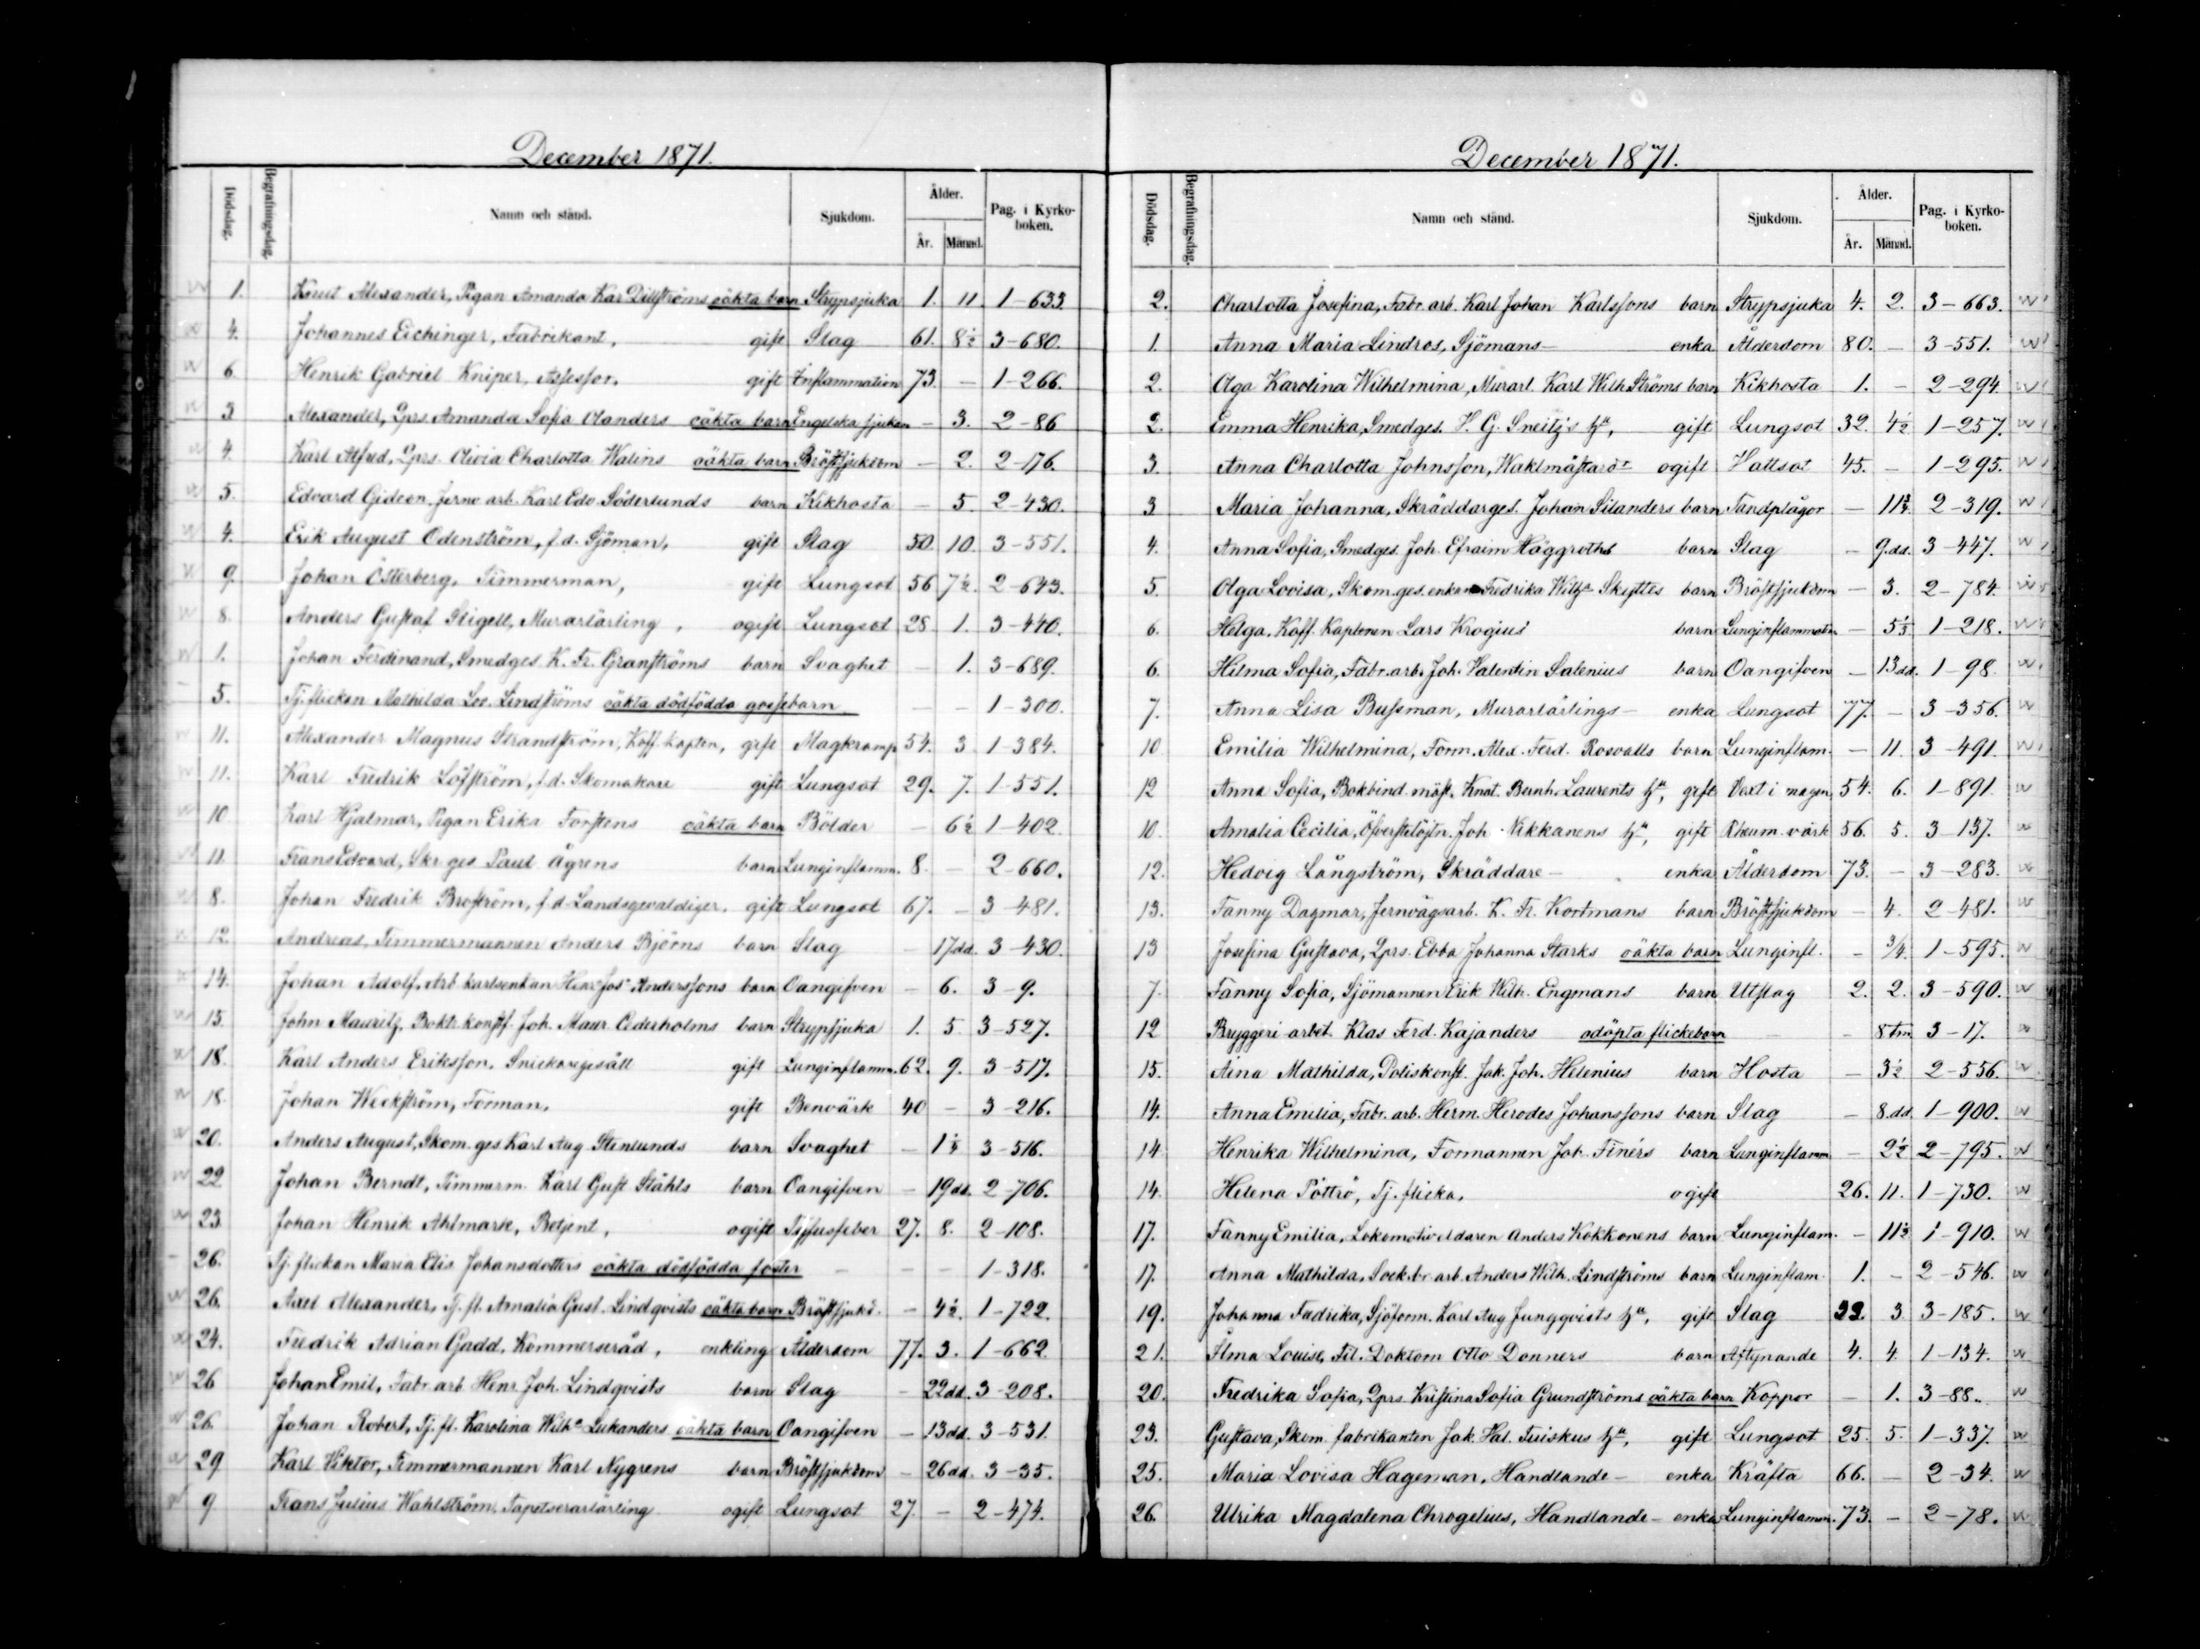 December 1871.
Dödsdag. Begrafningsdag. Namn och stånd. Sjukdom. Ålder. År. Månad. Pag. i Kyrko-boken.
1. Knut Alexander, Pigan Amanda Kar. Dillströms oäkta barn Strypsjuka 1. 11. 1-633
4. Johannes Eichinger, Fabrikant, gift Slag 61. 8½ 3-680.
6. Henrik Gabriel Kniper, Assessor. gift Inflammation 73. — 1-266.
3 Alexander, Lprs. Amanda Sofia Olanders oäkta barn Engelska sjukan — 3. 2-86
4. Karl Alfred, Lprs. Olivia Charlotta Walins oäkta barn Bröstsjukdom — 2. 2-176.
5. Edvard Gideon, Jernv arb. Karl Edv. Söderlunds barn Kikhosta — 5. 2-430.
4. Erik August Odenström, f.d. Sjöman, gift Slag 50. 10. 3-551.
9. Johan Österberg, Timmerman, gift Lungsot 56 7½. 2-643.
8. Anders Gustaf Stigell, Murarlärling, ogift Lungsot 28. 1. 3-440.
1. Johan Ferdinand, Smedges. K. Fr. Granströms barn Svaghet — 1. 3-689.
5. Tj. flickan Mathilda Lov. Lindströms oäkta dödfödda gossebarn — — 1-300.
11. Alexander Magnus Strandström, Koff. kapten, gift Magkramp 54. 3 1-384.
11. Karl Fredrik Löfström, f.d. Skomakare gift Lungsot 29. 7. 1-551.
10. Karl Hjalmar, Pigan Erika Forstens oäkta barn Bölder — 6½ 1-402
11. Frans Edvard, Skr. ges Paul Ågrens barn Lunginflamm. 8. — 2-660.
8. Johan Fredrik Broström, f.d. Landsgevaldiger, gift Lungsot 67. — 3-481.
12. Andreas, Timmermannen Anders Björns barn Slag — 17 dd. 3-430.
14. Johan Adolf, Arb karlsenkan Hen. Jos. Anderssons barn Oangifven — 6. 3-9.
15. John Mauritz, Boktr. konstf. Joh. Maur. Cederholms barn Strypsjuka 1. 5. 3-527.
18. Karl Anders Eriksson, Snickaregesäll gift Lunginflamm. 62. 9. 3-517.
18. Johan Weckström, Forman, gift Benvärk 40 — 3-216.
20. Anders August, Skom. ges Karl Aug Stenlunds barn Svaghet — 1½ 3-516.
22 Johan Berndt, Timmerm. Karl Gust Ståhls barn Oangifven — 19 dd. 2-706.
23. Johan Henrik Ahlmark, Betjent, ogift Tyfusfeber 27. 8. 2-108.
26. Tj. flickan Maria Elis. Johansdotters oäkta dödfödda foster — — — 1-318.
26. Axel Alexander, Tj. fl. Amalia Gust. Lindqvists oäkta barn Bröstsjukd. — 4½. 1-722.
24. Fredrik Adrian Gadd, Kommerseråd, enkling Ålderdom 77. 3. 1-662
26 Johan Emil, Fabr. arb. Henr. Joh. Lindqvists barn Slag — 22 dd. 3-208.
26. Johan Robert, Tj. fl. Karolina Wilh:a Lukanders oäkta barn Oangifven — 13 dd. 3-531.
29 Karl Viktor, Timmermannen Karl Nygrens barn Bröstsjukdom — 26 dd. 3-35.
9 Frans Julius Wahlström, Tapetserarlärling ogift Lungsot 27. — 2-474.
December 1871.
Dödsdag. Begrafningsdag. Namn och stånd. Sjukdom. Ålder. År. Månad. Pag. i Kyrko-boken.
2. Charlotta Josefina, Fabr. arb. Karl Johan Karlssons barn Strypsjuka 4. 2. 3-663.
1. Anna Maria Lindros, Sjömans- enka Ålderdom 80. — 3-551.
2. Olga Karolina Wilhelmina, Murarl. Karl Wilh. Ströms barn Kikhosta 1. — 2-294
2. Emma Henrika, Smedges. H. G. Sneitz's h:u, gift Lungsot 32. 4½ 1-257.
3. Anna Charlotta Johnsson, Waktmästared:r ogift Hallsot 45. — 1-295.
3 Maria Johanna, Skräddarges. Johan Silanders barn Tandplågor — 11½. 2-319.
4. Anna Sofia, Smedges. Joh. Efraim Häggroths barn Slag — 9. dd. 3-447.
5. Olga Lovisa, Skom. ges. enkan Fredrika Wilh:a Skyttes barn Bröstsjukdom — 3. 2-784.
6. Helga, Koff. Kaptenen Lars Krogius barn Lunginflammation — 5½ 1-218.
6. Hilma Sofia, Fabr. arb. Joh. Valentin Salenius barn Oangifven — 13 dd. 1-98.
7. Anna Lisa Bussman, Murarlärlings- enka Lungsot 77. — 3-356.
10 Emilia Wilhelmina, Form. Alex. Ferd. Rosvalls barn Lunginflam. — 11. 3-491.
12 Anna Sofia, Bokbind. mäst. Knut. Bernh. Laurents h:u, gift Vext i magen 54. 6. 1-891.
10. Amalia Cecilia, Öfverstelöjtn. Joh. Nikkanens h:u, gift Rheum. värk 56. 5. 3-137.
12. Hedvig Långström, Skräddare- enka Ålderdom 73. — 3-283.
13. Fanny Dagmar, Jernvägsarb. K. Fr. Kortmans barn Bröstsjukdom — 4. 2-481.
13 Josefina Gustava, Lprs. Ebba Johanna Starks oäkta barn Lunginfl. — 3/4. 1-595.
7. Fanny Sofia, Sjömannen Erik Wilh. Engmans barn Utslag 2. 2. 3-590.
12 Bryggeri arbet. Klas Ferd. Kajanders odöpta flickebarn — 8 tm 3-17.
15. Aina Mathilda, Poliskonst. Jak. Joh. Helenius barn Hosta — 3½ 2-556.
14. Anna Emilia, Fabr. arb. Herm. Herodes Johanssons barn Slag — 8. dd. 1-900.
14 Henrika Wilhelmina, Formannen Joh. Finérs barn Lunginflamm — 2½ 2-795.
14. Helena Pöttrö, Tj. flicka, ogift 26. 11. 1-730.
17. Fanny Emilia, Lokomotiveldaren Anders Kokkonens barn Lunginflam. — 11½ 1-910.
17. Anna Mathilda, Sockbr. arb. Anders Wilh. Lindströms barn Lunginflam. 1. — 2-546.
19. Johanna Fadrika, Sjöform. Karl Aug Jungqvists h:u, gift Slag 32. 3 3-185.
21. Alma Louise, Fil. Doktorn Otto Donners barn Aftynande 4. 4. 1-134.
20. Fredrika Sofia, Lprs. Kristina Sofia Grundströms oäkta barn Koppor — 1. 3-88.
23. Gustava, Skom. fabrikanten Jak. Val. Tuiskus h:u, gift Lungsot 25. 5. 1-337.
25. Maria Lovisa Hageman, Handlande- enka Kräfta 66. — 2-34.
26. Ulrika Magdalena Chrogelius, Handlande- enka Lunginflamm. 73. — 2-78.